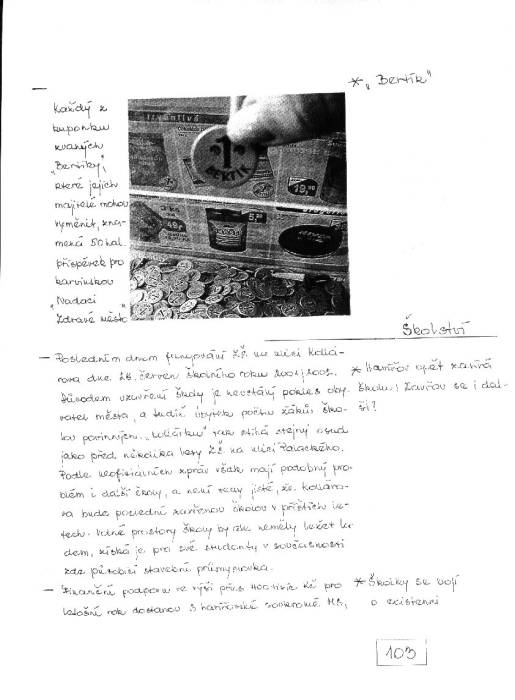 * „Bertík"
— Každý z
kuponků
zvaných
„Bertíky",
které jejich
majitelé mohou
vyměnit, zna-
mená 50 hal.
příspěvek pro
karvinskou
Nadaci
„Zdravé město"
1
BERTÍK
19,90
5,90
Školství
— Posledním dnem fungování ZŠ na ulici Kollá-
rova dne 28. červen školního roku 2001/2002.
Důvodem uzavření školy je neustálý pokles oby-
vatel města, a tudíž úbytek počtu žáků ško-
lou povinných. „Kollárku" tak stihá stejný osud
jako před několika lety ZŠ na ulici Palackého.
Podle neoficiálních zpráv však mají podobný pro-
blém i další školy, a není tedy jisté, že Kollaro-
va bude poslední zavřenou školou v příštích le-
tech. Volné prostory školy by zde neměly ležet la-
dem, získá je pro své studenty v současnosti
zde působící stavební průmyslovka.
* Havířov opět zavírá
školu! Zavřou se i dal-
ší?
— Finanční podporu ve výši přes 400 tisíc Kč pro
letošní rok dostanou 3 havířovské soukromé MŠ,
* Školky se bojí
o existenci
103